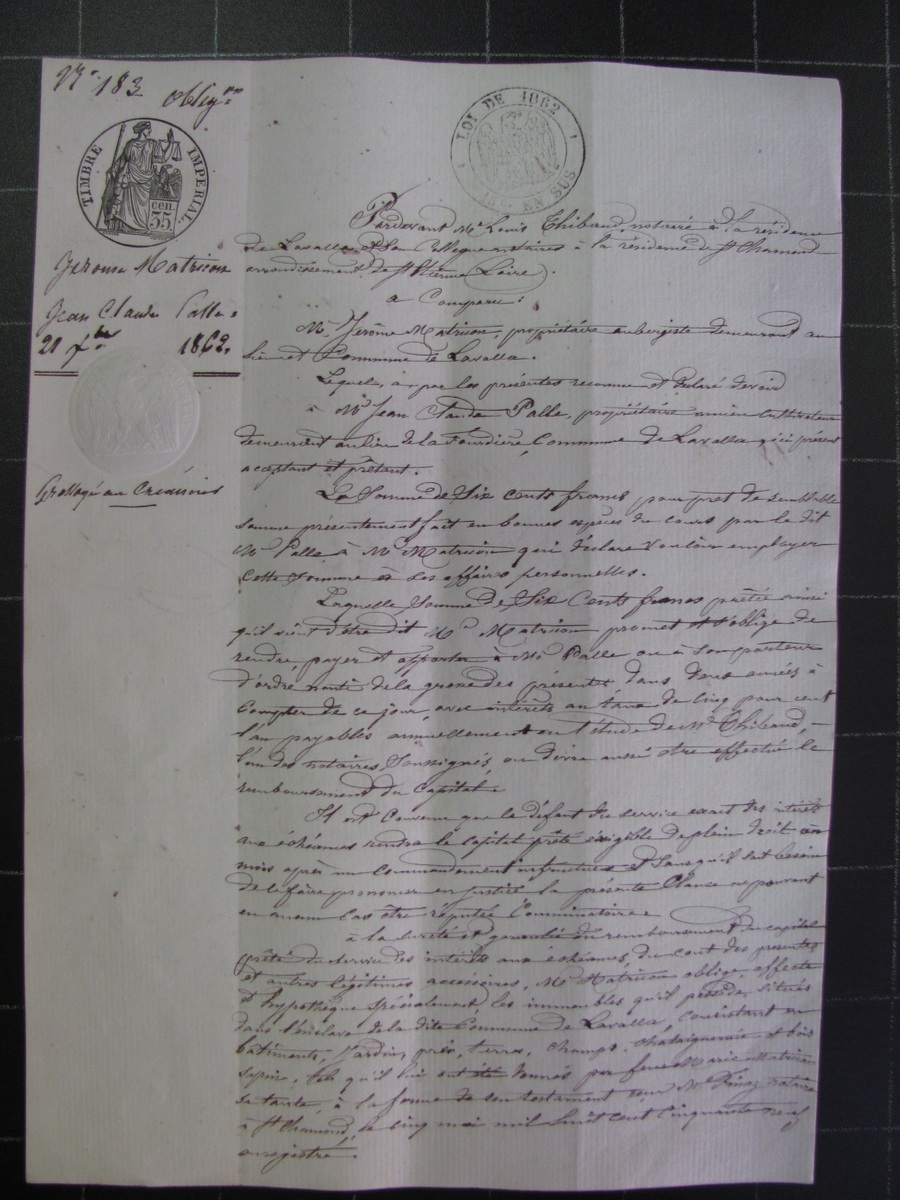 N° 183 oblig.on
TIMBRE IMPERIAL
35 cen.
LOI DE 1862
EN SUS
Jerome Matricon
Jean Claude Palle
21 1862.
Grossoyé au Créancier
Pardevant Me Louis Thibaud, notaire à la résidence
de Lavalla et son Collègue notaires à la résidence de St Chamond
arrondissement de St Etienne Loire.
a Comparu:
Mr Jerôme Matricon, propriétaire aubergiste demeurant au
lieu et Commune de Lavalla.
Lequel, a par les présentes reconnu et déclaré devoir
à Mr Jean Claude Palle, propriétaire ancien cultivateur
demeurant au lieu de la Fourdière, Commune de Lavalla ici présent
acceptant et prêtant.
La Somme de Six cents francs pour prêt de semblable
somme présentement fait en bonnes espèces du cours par le dit
Mr Palle à Mr Matricon qui déclare vouloir employer
cette somme à ses affaires personnelles.
Laquelle Somme de Six Cents francs prêtée ainsi
qu'il vient d'être dit Mr Matricon promet et s'oblige de
rendre, payer et apporter à Mr Palle ou à son porteur
d'ordre nanti de la grosse des présentes dans deux années à
compter de ce jour, avec intérêts au taux de cinq pour cent
l'an payables annuellement en l'étude de Me Thibaud,
l'un des notaires Soussignés, où devra aussi être effectué le
remboursement du Capital.
Il est Convenu que le défaut du service exact des intérêts
aux échéances rendra le capital prêté exigible de plein droit un
mois après un Commandement infructueux et Sans qu'il soit besoin
de le faire prononcer en justice la présente Clause ne pouvant
en aucun cas être réputée Comminatoire.
à la Sureté et garantie du remboursement du capital
prêté du Service des intérêts aux échéances, du cout des présentes
et autres légitimes accessoires, Mr Matricon oblige, affecte
et hypothèque Spécialement les immeubles qu'il possède, situés
dans l'enclave de la dite Commune de Lavalla, consistant en
bâtiments, Jardin, prés, terres, champs, chataigneraie et bois
Sapins, tels qu'il lui ont été donnés par feue Marie Matricon
sa tante, à la forme de son testament reçu Me Finaz notaire
à St Chamond, le cinq mai mil huit cent cinquante neuf
enregistré.